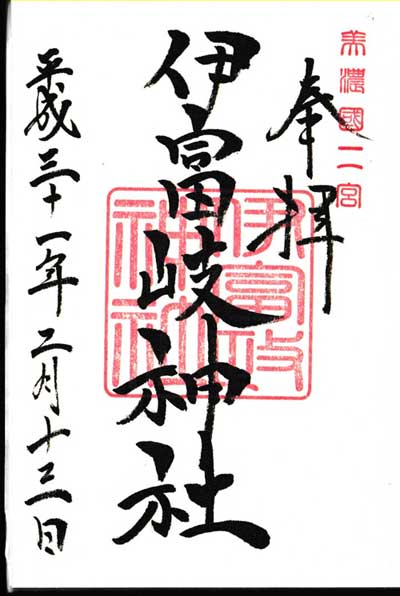 美濃國二宮
奉拝
伊富岐神社
伊富岐神社
平成三十一年二月十三日